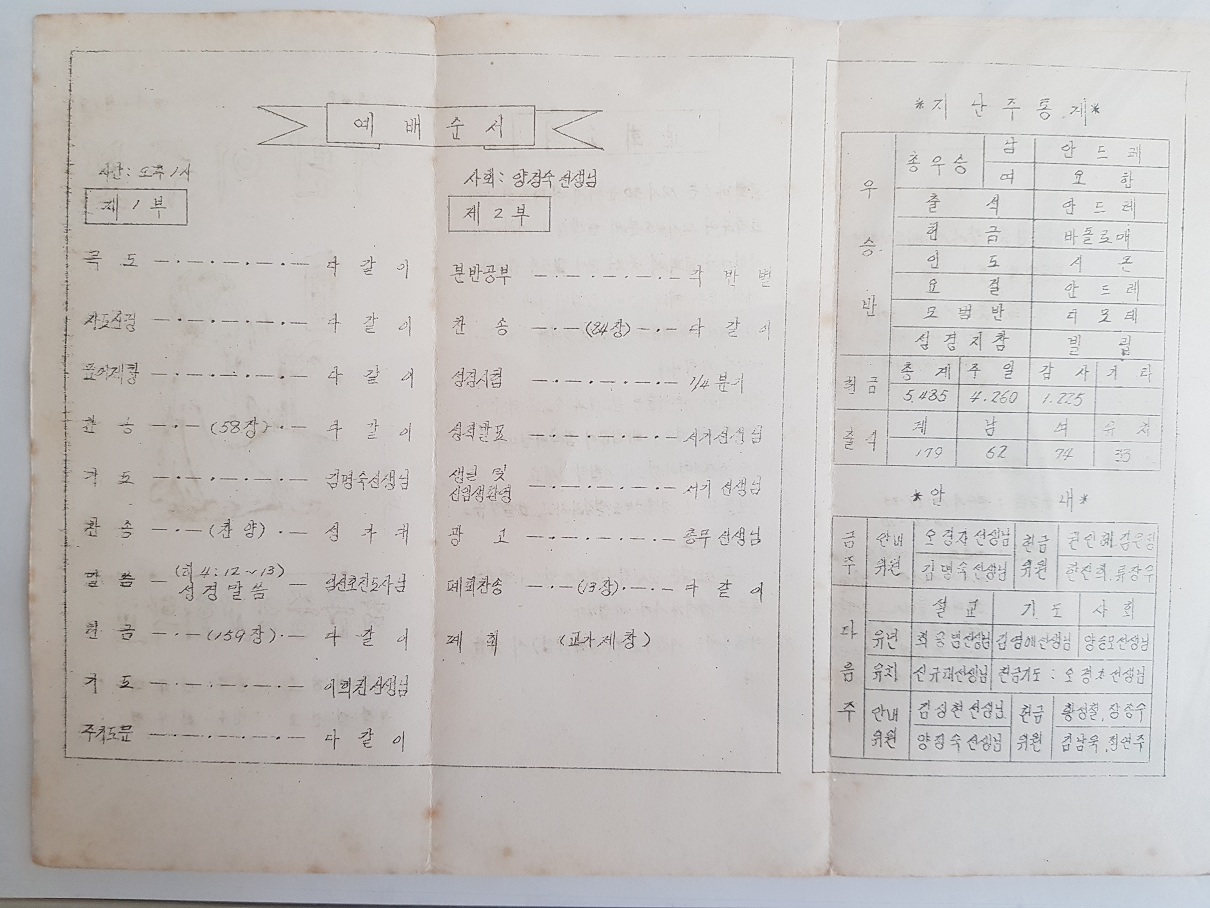 예 배 순 서
시간: 오후 1시
사회: 양정숙 선생님
제 1 부
묵 도 다 같 이
사도신경 다 같 이
표어제창 다 같 이
찬 송 (58장) 다 같 이
기 도 김명숙선생님
찬 송 (찬양) 성 가 대
말 씀 (히 4:12~13) 성경말씀 전도사님
헌 금 (159장) 다 같 이
기 도 선생님
주기도문 다 같 이
제 2 부
분반공부 각 반 별
찬 송 (84장) 다 같 이
성경시험 1/4 분기
성적발표 서기선생님
생일 및
신입생환영 서기 선생님
광 고 총무 선생님
폐회찬송 (13장) 다 같 이
폐 회 (교가제창)
*지 난 주 통 계*
우 승 반
총우승 남 안 드 레
여 요 한
출 석 안 드 레
헌 금 바돌로매
인 도 시 몬
요 절 안 드 레
모 범 반 디 모 데
성경지참 빌 립
헌금 총 계 주 일 감 사 기 타
5,485 4.260 1.225
출석 계 남 여 유 치
179 62 74 33
*안 내*
금주 안내위원 오경자선생님 헌금위원
김명숙선생님 류장우
다음주 설 교 기 도 사 회
유년 선생님 김영애선생님 양승모선생님
유치 신규재선생님 헌금기도: 선생님
안내위원 김정현선생님 헌금위원 황정철, 장종수
양정숙선생님 김남욱, 정연주